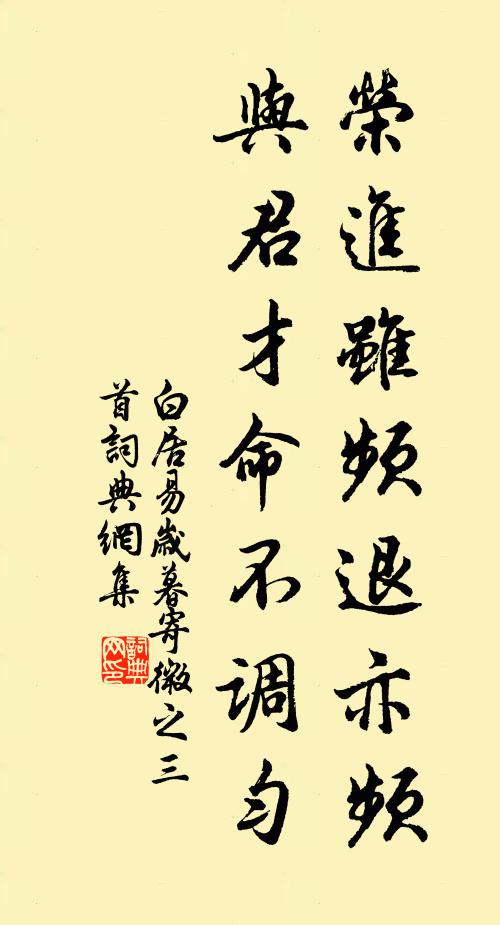 榮進雖頻退亦頻
與君才命不調勻
白居易歲暮寄微之三
首詞典網集
詞典
网印